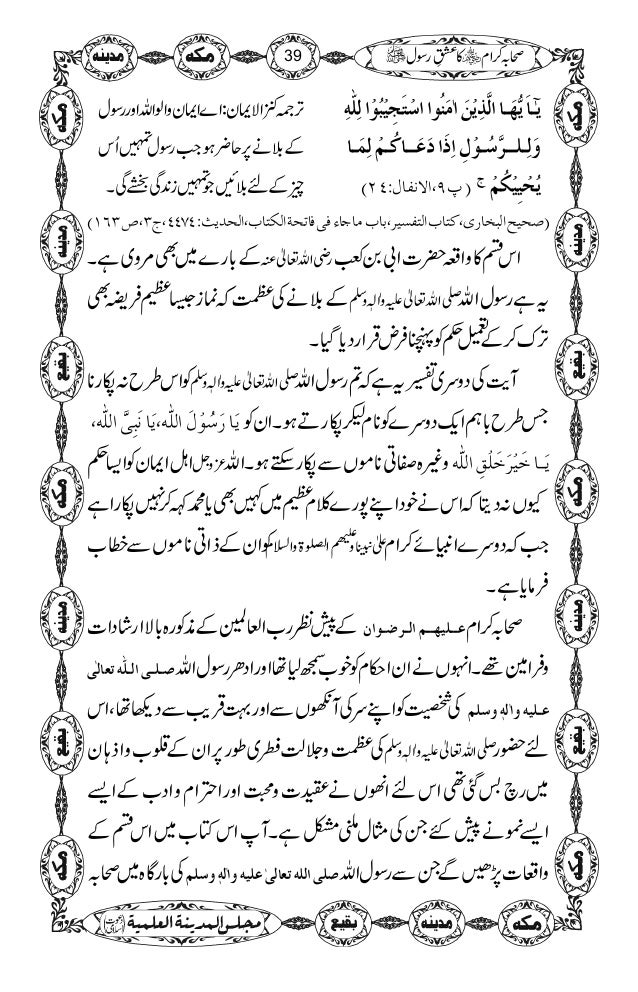 مدینہ مکہ 39 صحابہ کرام کا عشق رسول
یٰۤاَ یُّهَا الَّذِیْنَ اٰمَنُوا اسْتَجِیْبُوْا لِلّٰهِ ترجمہ کنز الایمان: اے ایمان والو اللہ اور رسول
وَ لِلرَّسُوْلِ اِذَا دَعَاكُمْ لِمَا کے بلانے پر حاضر ہو جب رسول تمہیں اُس
یُحْیِیْكُمْ ۚ (پ۹،الانفال:۲۴) چیز کے لئے بلائیں جو تمہیں زندگی بخشے گی۔
(صحیح البخاری، کتاب التفسیر، باب ماجاء فی فاتحة الکتاب، الحدیث: ۴۴۷۴، ج۳، ص۱۶۳)
اس قسم کا واقعہ حضرت ابی بن کعب رضی اللہ تعالیٰ عنہ کے بارے میں بھی مروی ہے۔
یہ ہے رسول اللہ صلی اللہ تعالیٰ علیہ واٰلہٖ وسلم کے بلانے کی عظمت کہ نماز جیسا عظیم فریضہ بھی
ترک کر کے تعمیل حکم کو پہنچنا فرض قرار دیا گیا۔
آیت کی دوسری تفسیر یہ ہے کہ تم رسول اللہ صلی اللہ تعالیٰ علیہ واٰلہٖ وسلم کو اس طرح نہ پکارنا
جس طرح باہم ایک دوسرے کو نام لیکر پکارتے ہو۔ ان کو یَا رَسُوْلَ اللّٰه، یَا نَبِیَّ اللّٰه،
یَا خَیْرَ خَلْقِ اللّٰه وغیرہ صفاتی ناموں سے پکار سکتے ہو۔ اللہ عزوجل اہل ایمان کو ایسا حکم
کیوں نہ دیتا کہ اس نے خود اپنے پورے کلام عظیم میں کہیں بھی یا محمد کہہ کر نہیں پکارا ہے
جب کہ دوسرے انبیائے کرام علیٰ نبینا وعلیهم الصلوة والسلام کو ان کے ذاتی ناموں سے خطاب
فرمایا ہے۔
صحابہ کرام علیهم الرضوان کے پیش نظر رب العالمین کے مذکورہ بالا ارشادات
وفرامین تھے۔ انہوں نے ان احکام کو خوب سمجھ لیا تھا اور ادھر رسول اللہ صلی اللہ تعالیٰ
علیہ واٰلہٖ وسلم کی شخصیت کو اپنے سر کی آنکھوں سے اور بہت قریب سے دیکھا تھا، اس
لئے حضور صلی اللہ تعالیٰ علیہ واٰلہٖ وسلم کی عظمت وجلالت فطری طور پر ان کے قلوب واذہان
میں رچ بس گئی تھی اس لئے انھوں نے عقیدت ومحبت اور احترام و ادب کے ایسے
ایسے نمونے پیش کئے جن کی مثال ملنی مشکل ہے۔ آپ اس کتاب میں اس قسم کے
واقعات پڑھیں گے جن سے رسول اللہ صلی اللہ تعالیٰ علیہ واٰلہٖ وسلم کی بارگاہ میں صحابہ
مکہ
مدینہ
بقیع
مکہ
مدینہ
بقیع
مکہ
مکہ
مدینہ
بقیع
مکہ
مدینہ
بقیع
مکہ
مجلس المدینۃ العلمیۃ بقیع مدینہ مکہ